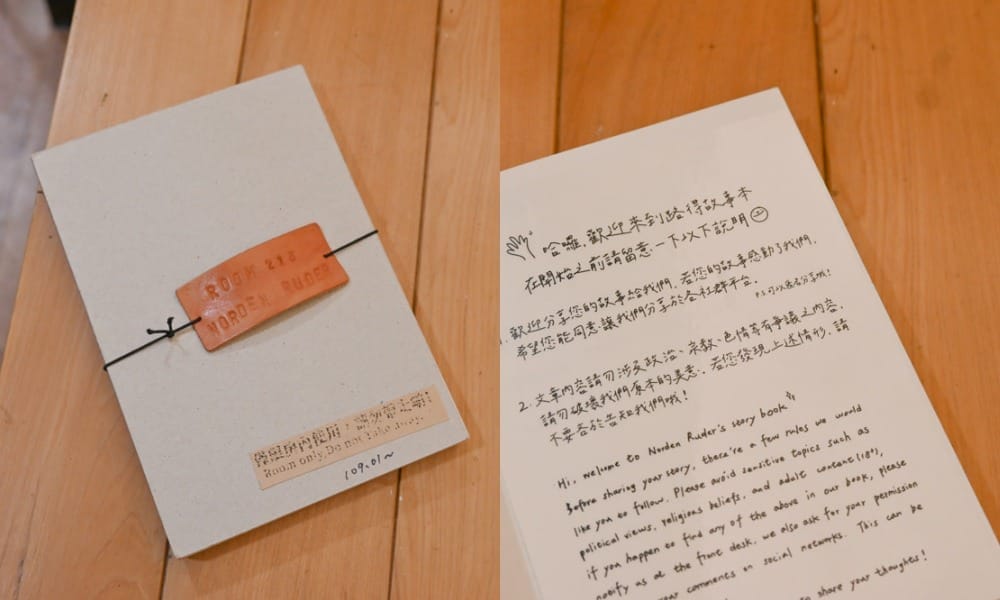 ROOM 218
NORDEN RUDER
僅限房內使用，請勿帶走
Room only, Do not take away.
109.01~
哈囉，歡迎來到路得故事本
在開始之前請留意一下以下說明
1. 歡迎分享您的故事給我們，若您的故事感動了我們，
希望您能同意讓我們分享於各社群平台。
P.S.可以匿名分享哦!
2. 文章內容請勿涉及政治、宗教、色情等有爭議之內容，
請勿破壞我們原本的美意，若您發現上述情形，請
不要吝於告知我們哦！
Hi, welcome to Norden Ruder's story book
Before sharing your story, there're a few rules we would
like you to follow. Please avoid sensitive topics such as
political views, religious beliefs, and adult content(18+),
if you happen to find any of the above in our book, please
notify us at the front desk. we also ask for your permission
your comments on social networks. This can be
to share your thoughts!